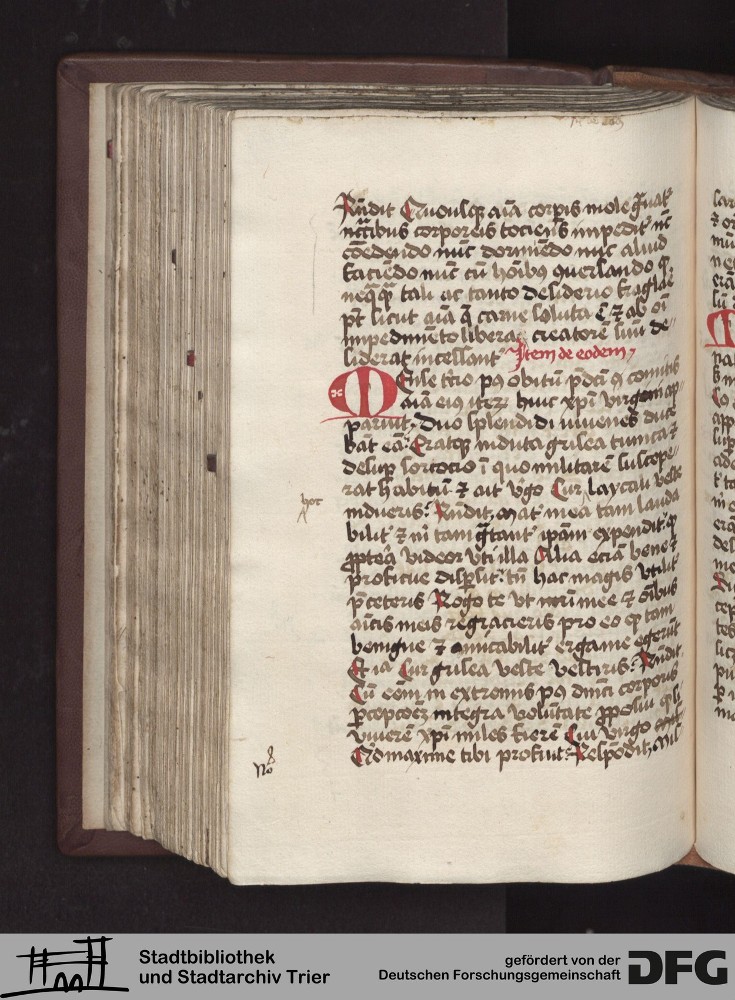 Rñdit Quousqꝫ aīa corꝑis mole gͣuat᷑
nōtibus corporeis tociens impedit᷑ nūc
cōedendo nūc dormiēdo nūc aliud
faciēdo nūc cū hoībꝰ querlando
neq̄q̄ tali ac tanto desiderio fraglare
pt̄ sicut aīa a carne soluta & ab oī
impedimēto libera creatorē suū de-
siderat incessant᷑ Item de eodem
Mense t̄cio pꝰ obitū p̄dcī comitis
aīam eiꝰ iteꝝ huic xp̄i virgini ap-
paruit. Duo splendidi iuuenes duce
bāt eā. Eratqꝫ induta grisea tunica &
desuꝑ sortocio ī quo militarē suscepe-
rat habitū & ait v̓go Cur laycali veste
indueris? Rñdit, Mat᷑ mea tam lauda
bilit᷑ & m̄ tam gͣtant᷑ ip̄am expendit
ꝓpterea videor vti illa Alia eciā bene &
proficue dispersit. tn̄ hac magis vtilit᷑
p̄ ceteris Rogo te vt mr̄i mee & oībus
aīcis meis regracieris pro eo qꝫ tam
benigne & amicabilit᷑ erga me egerūt
Et ia Cur grisea veste vestiris? Rñdit
Cū eēm in extremis pꝰ dn̄ici corporis
ꝑcepcōeꝫ integra volūtate ꝓposui
viuerē xp̄i miles fierē Cui virgo
Quo maxime tibi profuit? Respōdit, Mis
hoc
No
Stadtbibliothek
und Stadtarchiv Trier
gefördert von der
Deutschen Forschungsgemeinschaft
DFG